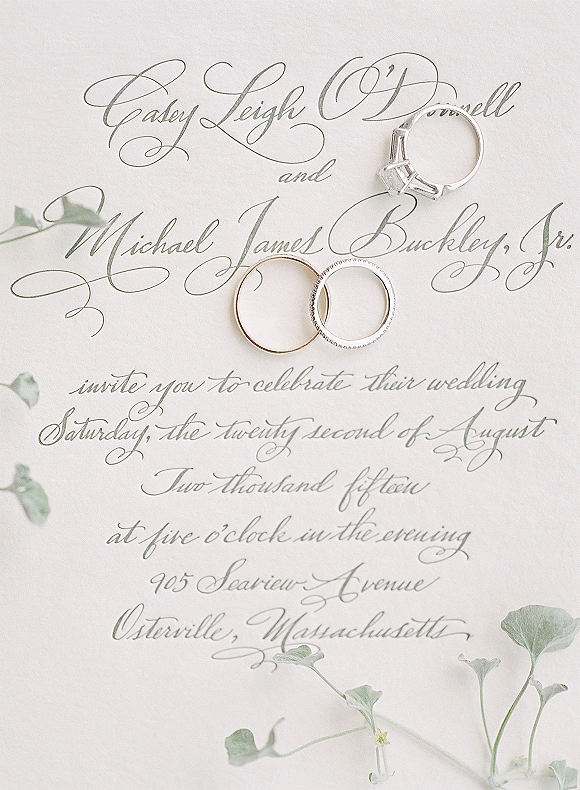 Casey Leigh O'Donnell
and
Michael James Buckley, Jr.
invite you to celebrate their wedding
Saturday, the twenty second of August
Two thousand fifteen
at five o'clock in the evening
905 Seaview Avenue
Osterville, Massachusetts